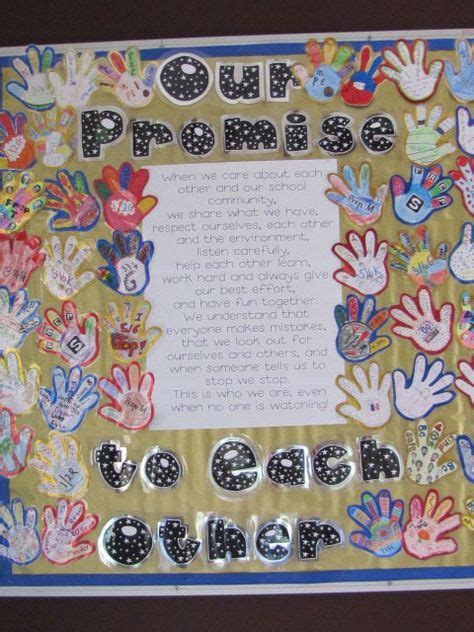 Our
Promise
When we care about each
other and our school
community,
we share what we have,
respect ourselves, each other
and the environment,
listen carefully,
help each other learn,
work hard and always give
our best effort,
and have fun together.
We understand that
everyone makes mistakes,
that we look out for
ourselves and others, and
when someone tells us to
stop we stop.
This is who we are, even
when no one is watching!
to Each
Other